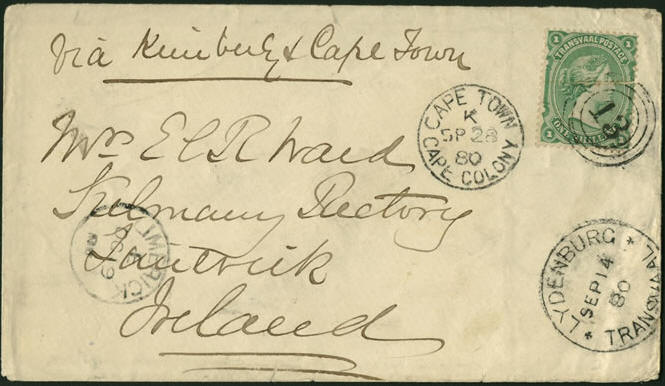 via Kimberley & Cape Town
TRANSVAAL POSTAGE
1 1
ONE SHILLING
CAPE TOWN
K
SP 28
80
CAPE COLONY
Mrs E C R Ward
Rectory
Ireland
LIMERICK
80
LYDENBURG
SEP 14
80
TRANSVAAL